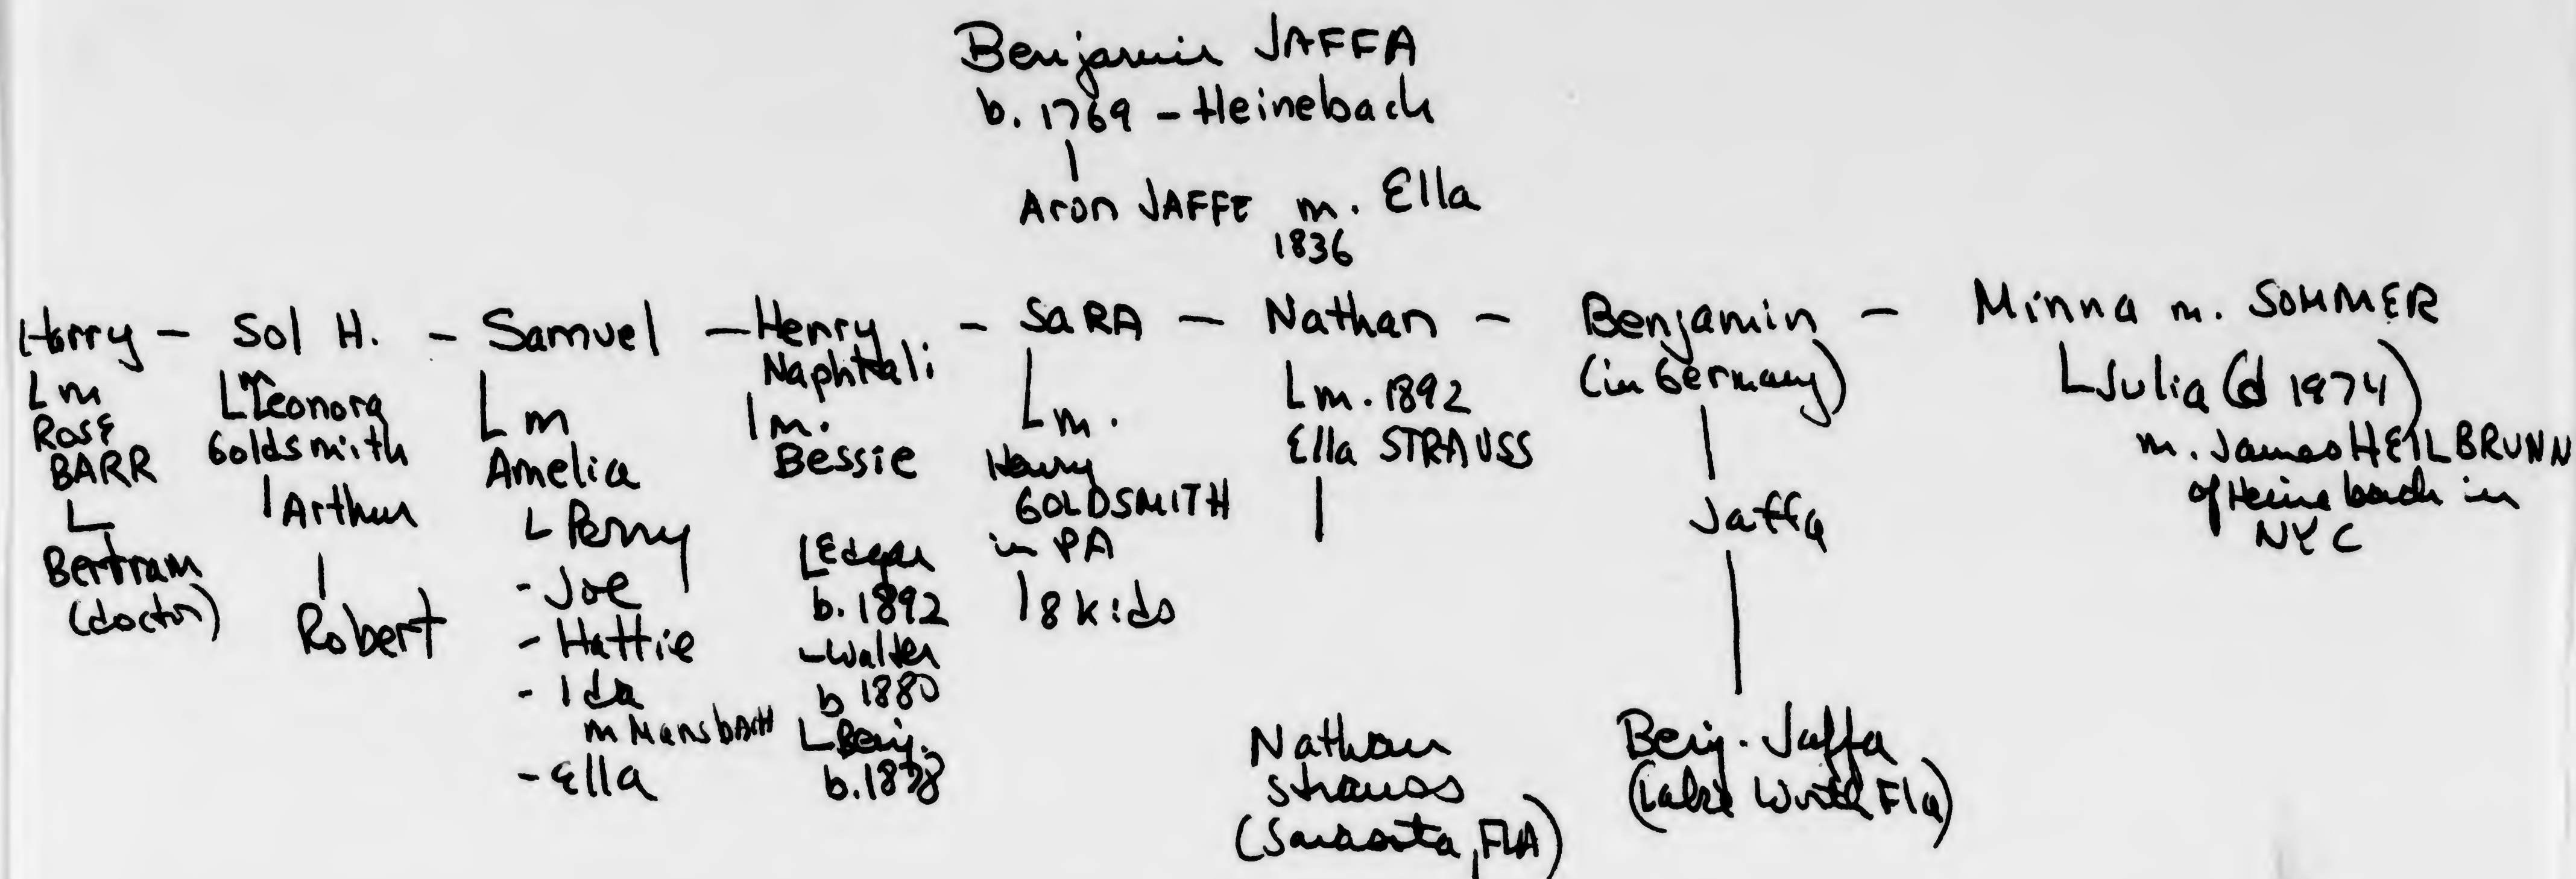 Benjamin JAFFA
b. 1769 - Heinebach
Aron JAFFE m. Ella
1836
Harry - Sol H. - Samuel - Henry - SARA - Nathan - Benjamin - Minna m. SOMMER
Naphtali
(in Germany)
L m
ROSE
BARR
L
Bertram
(doctor)
L m Leonora
Goldsmith
Arthur
Robert
L m
Amelia
L Perry
- Joe
- Hattie
- Ida
m Mansbach
- Ella
m.
Bessie
L Edgar
b. 1892
- Walter
b 1880
L Benj.
b. 1878
L m.
Henry
GOLDSMITH
in PA
8 kids
L m. 1892
Ella STRAUSS
Nathan
Strauss
(Sarasota, FLA)
Jaffa
Benj. Jaffa
(Lake Worth Fla)
L Julia (d 1974)
m. James HEILBRUNN
of Heinebach in
NYC